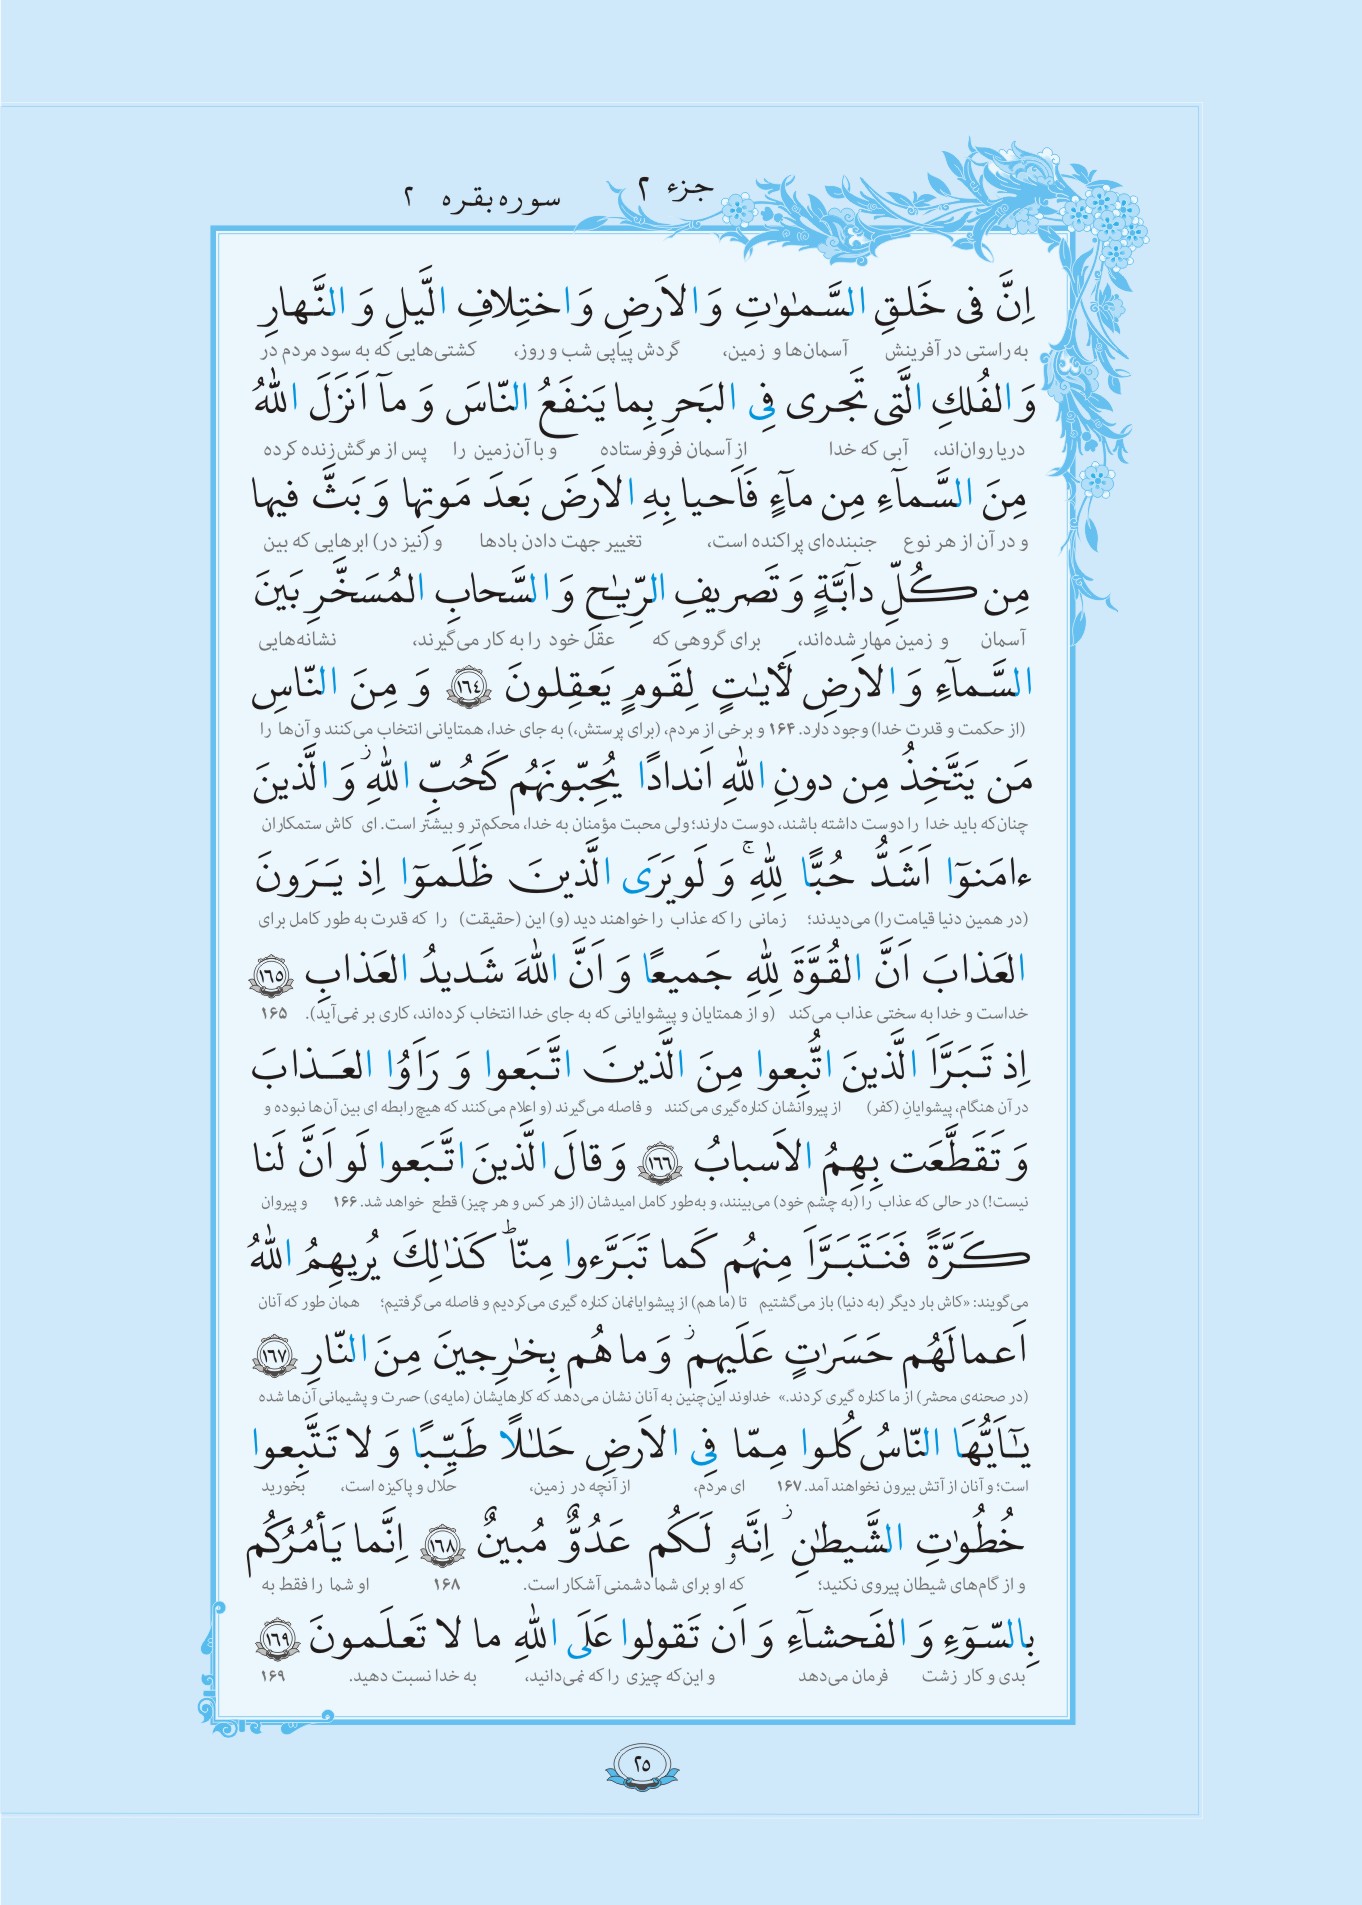 جزء ۲
سوره بقره ۲
اِنَّ فی خَلقِ السَّمٰوٰتِ وَ الاَرضِ وَ اختِلافِ الَّیلِ وَ النَّهارِ
به راستی در آفرینش آسمان‌ها و زمین، گردش پیاپی شب و روز، کشتی‌هایی که به سود مردم در
وَ الفُلکِ الَّتی تَجری فِی البَحرِ بِما یَنفَعُ النّاسَ وَ مآ اَنزَلَ اللّٰهُ
دریا روان‌اند، آبی که خدا از آسمان فروفرستاده و با آن زمین را پس از مرگش زنده کرده
مِنَ السَّمآءِ مِن مآءٍ فَاَحیا بِهِ الاَرضَ بَعدَ مَوتِها وَ بَثَّ فیها
و در آن از هر نوع جنبنده‌ای پراکنده است، تغییر جهت دادن بادها و (نیز در) ابرهایی که بین
مِن کُلِّ دآبَّةٍ وَ تَصریفِ الرِّیٰحِ وَ السَّحابِ المُسَخَّرِ بَینَ
آسمان و زمین مهار شده‌اند، برای گروهی که عقل خود را به کار می‌گیرند، نشانه‌هایی
السَّمآءِ وَ الاَرضِ لَأٰیٰتٍ لِقَومٍ یَعقِلونَ ١٦٤ وَ مِنَ النّاسِ
(از حکمت و قدرت خدا) وجود دارد. ۱۶۴ و برخی از مردم، (برای پرستش،) به جای خدا، همتایانی انتخاب می‌کنند و آن‌ها را
مَن یَتَّخِذُ مِن دونِ اللّٰهِ اَندادًا یُحِبّونَهُم کَحُبِّ اللّٰهِ ۖز وَ الَّذینَ
چنان‌که باید خدا را دوست داشته باشند، دوست دارند؛ ولی محبت مؤمنان به خدا، محکم‌تر و بیشتر است. ای کاش ستمکاران
ءامَنوٓا اَشَدُّ حُبًّا لِلّٰهِ ۚ وَ لَو یَرَی الَّذینَ ظَلَموٓا اِذ یَرَونَ
(در همین دنیا قیامت را) می‌دیدند؛ زمانی را که عذاب را خواهند دید (و) این (حقیقت) را که قدرت به طور کامل برای
العَذابَ اَنَّ القُوَّةَ لِلّٰهِ جَمیعًا وَ اَنَّ اللّٰهَ شَدیدُ العَذابِ ١٦٥
خداست و خدا به سختی عذاب می‌کند (و از همتایان و پیشوایانی که به جای خدا انتخاب کرده‌اند، کاری بر نمی‌آید). ۱۶۵
اِذ تَبَرَّاَ الَّذینَ اتُّبِعوا مِنَ الَّذینَ اتَّبَعوا وَ رَاَوُا العَذابَ
در آن هنگام، پیشوایانِ (کفر) از پیروانشان کناره‌گیری می‌کنند و فاصله می‌گیرند (و اعلام می‌کنند که هیچ رابطه ای بین آن‌ها نبوده و
وَ تَقَطَّعَت بِهِمُ الاَسبابُ ١٦٦ وَ قالَ الَّذینَ اتَّبَعوا لَو اَنَّ لَنا
نیست!) در حالی که عذاب را (به چشم خود) می‌بینند، و به‌طور کامل امیدشان (از هر کس و هر چیز) قطع خواهد شد. ۱۶۶ و پیروان
کَرَّةً فَنَتَبَرَّاَ مِنهُم کَما تَبَرَّءوا مِنّا ؕ کَذٰلِکَ یُریهِمُ اللّٰهُ
می‌گویند: «کاش بار دیگر (به دنیا) باز می‌گشتیم تا (ما هم) از پیشوایانمان کناره گیری می‌کردیم و فاصله می‌گرفتیم؛ همان طور که آنان
اَعمالَهُم حَسَرٰتٍ عَلَیهِم ز وَ ما هُم بِخٰرِجینَ مِنَ النّارِ ١٦٧
(در صحنه‌ی محشر) از ما کناره گیری کردند.» خداوند این‌چنین به آنان نشان می‌دهد که کارهایشان (مایه‌ی) حسرت و پشیمانی آن‌ها شده
یٰٓاَیُّهَا النّاسُ کُلوا مِمّا فِی الاَرضِ حَلٰلًا طَیِّبًا وَ لا تَتَّبِعوا
است؛ و آنان از آتش بیرون نخواهند آمد. ۱۶۷ ای مردم، از آنچه در زمین، حلال و پاکیزه است، بخورید
خُطُوٰتِ الشَّیطٰنِ ز اِنَّهٗ لَکُم عَدُوٌّ مُبینٌ ١٦٨ اِنَّما یَأمُرُکُم
و از گام‌های شیطان پیروی نکنید؛ که او برای شما دشمنی آشکار است. ۱۶۸ او شما را فقط به
بِالسّوٓءِ وَ الفَحشآءِ وَ اَن تَقولوا عَلَی اللّٰهِ ما لا تَعلَمونَ ١٦٩
بدی و کار زشت فرمان می‌دهد و این‌که چیزی را که نمی‌دانید، به خدا نسبت دهید. ۱۶۹
۲۵